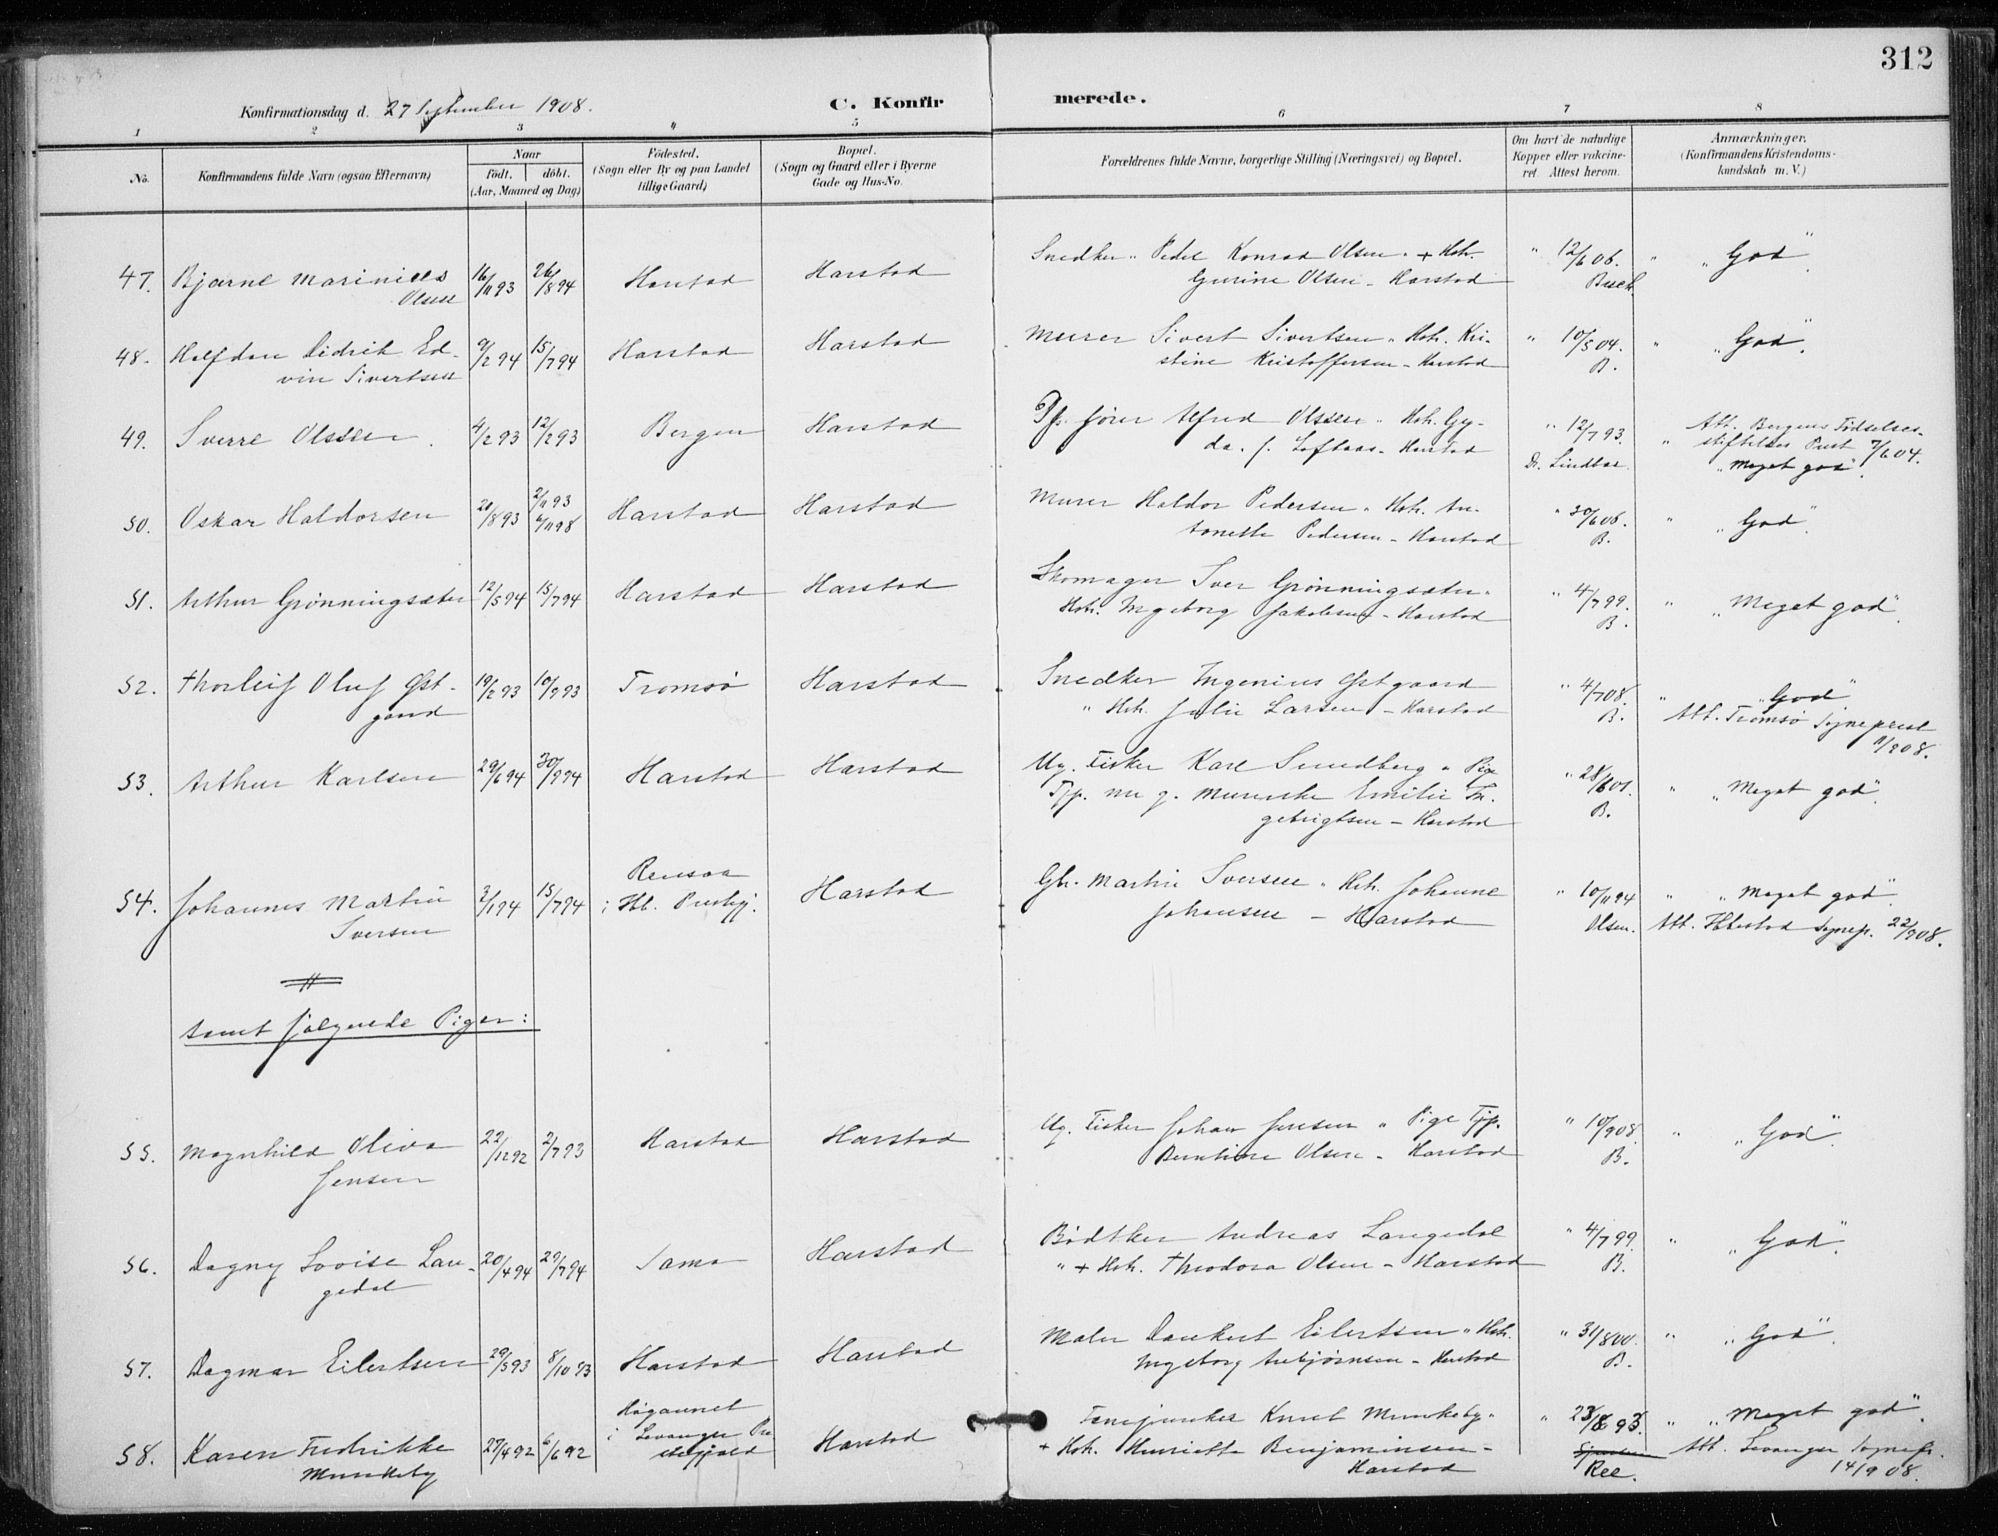 312
Konfirmationsdag d. 27 September 1908.
C. Konfirmerede.
1 2 3 " 5 6 7 8
No.
Konfirmandens fulde Navn (ogsaa Efternavn)
Naar
født. døbt.
(Aar, Maaned og Dag)
Fødested.
(Sogn eller By og paa Landet
tillige Gaard)
Bopæl.
(Sogn og Gaard eller i Byerne
Gade og Hus-No.
Forældrenes fulde Navne, borgerlige Stilling (Næringsvei) og Bopæl.
Om havt de naturlige
Kopper eller vakcine-
ret. Attest herom.
Anmærkninger.
(Konfirmandens Kristendoms-
kundskab m. V.)
47. Bjarne Marinius 16/11 93 26/8 94 Harstad Harstad Snedker " Pedel Konrad Olsen " + Hstr. " 12/6 06. " "God".
Olsen Gurine Olsen - Harstad Buch.
48. Halfdan Didrik Ed- 9/2 94 15/7 94 Harstad Harstad Murer Sivert Sivertsen " Hstr. Kri- " 10/5 04. " "God".
vin Sivertsen stine Kristoffersen - Harstad B.
49. Sverre Olssen. 4/2 93 12/2 93 Bergen Harstad Dp. fører Alfred Olssen " Hstr. Gy- " 12/7 93. Att. Bergens Fødselses-
da. f. Loftaas - Harstad Dr. Lindboe. " stiftelses Prest 7/6 04.
"Meget god".
50. Oskar Haldorsen 20/8 93 2/11 93 Harstad Harstad Murer Haldor Pedersen " Hstr. An- " 30/6 06. " "God".
6/11 98 tonette Pedersen - Harstad B.
51. Arthur Grönningsæter 12/5 94 15/7 94 Harstad Harstad Skomager Iver Grönningsæter " " 4/7 99. " "Meget god".
Hstr. Ingeborg Jakobsen - Harstad B.
52. Thorleif Oluf Øst- 19/2 93 10/9 93 Tromsø Harstad Snedker Ingenius Østgaard " 4/7 08. " "God"
gaard " Hstr. Julie Larsen - Harstad B. Att. Tromsø Sogneprest
11/9 08.
53. Arthur Karlsen 29/6 94 30/9 94 Harstad Harstad Ug. Fisker Karl Sundberg " Pige " 28/6 01. " "Meget god".
Tjp. nu g. Murerske Emilie In- B.
gebrigtsen - Harstad
54. Johannes Martin 3/1 94 15/7 94 Rensaa Harstad Gbr. Martin Iversen " Hstr. Johanne " 10/11 94 " "Meget god".
Iversen i Ib. Prestgj. Johansen - Harstad Olsen. Att. Ibbestad Sognep. 22/9 08.
samt følgende Piger:
55. Magnhild Oliva 22/12 92 2/7 93 Harstad Harstad Ug. Fisker Johan Jensen " Pige Tjp. " 10/9 08. " "God".
Jensen Berntine Olsen - Harstad B.
56. Dagny Lovise Lan- 20/4 94 29/7 94 Sama Harstad Bødtker Andreas Langedal " 4/7 99. " "God".
gedal " + Hstr. Theodora Olsen - Harstad B.
57. Dagmar Eilertsen 29/5 93 8/10 93 Harstad Harstad Maler Dankert Eilertsen " Hstr. " 31/8 00. " "God".
Ingeborg Arebjørnsen - Harstad B.
58. Karen Fredrikke 27/4 92 6/6 92 Høgaunet Harstad Tømmerker Knut Munkeby " " 23/8 93. " "Meget god".
Munkeby i Levanger Pre- + Hstr. Henriette Benjaminsen - Att. Levanger Sognep.
stegjeld Harstad Ree. 14/9 08.